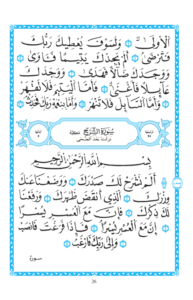 ٱلْأُولَىٰ وَلَسَوْفَ يُعْطِيكَ رَبُّكَ
فَتَرْضَىٰ أَلَمْ يَجِدْكَ يَتِيمًا فَـَٔاوَىٰ
وَوَجَدَكَ ضَآلًّا فَهَدَىٰ وَوَجَدَكَ
عَآئِلًا فَأَغْنَىٰ فَأَمَّا ٱلْيَتِيمَ فَلَا تَقْهَرْ
وَأَمَّا ٱلسَّآئِلَ فَلَا تَنْهَرْ وَأَمَّا بِنِعْمَةِ رَبِّكَ فَحَدِّثْ
سُورَةُ الشَّرْحِ مكية
نزلت بعد الضحى
بِسْمِ ٱللَّهِ ٱلرَّحْمَٰنِ ٱلرَّحِيمِ
أَلَمْ نَشْرَحْ لَكَ صَدْرَكَ وَوَضَعْنَا عَنْكَ
وِزْرَكَ ٱلَّذِىٓ أَنْقَضَ ظَهْرَكَ وَرَفَعْنَا
لَكَ ذِكْرَكَ فَإِنَّ مَعَ ٱلْعُسْرِ يُسْرًا
إِنَّ مَعَ ٱلْعُسْرِ يُسْرًا فَإِذَا فَرَغْتَ فَٱنْصَبْ
وَإِلَىٰ رَبِّكَ فَٱرْغَبْ
سورة